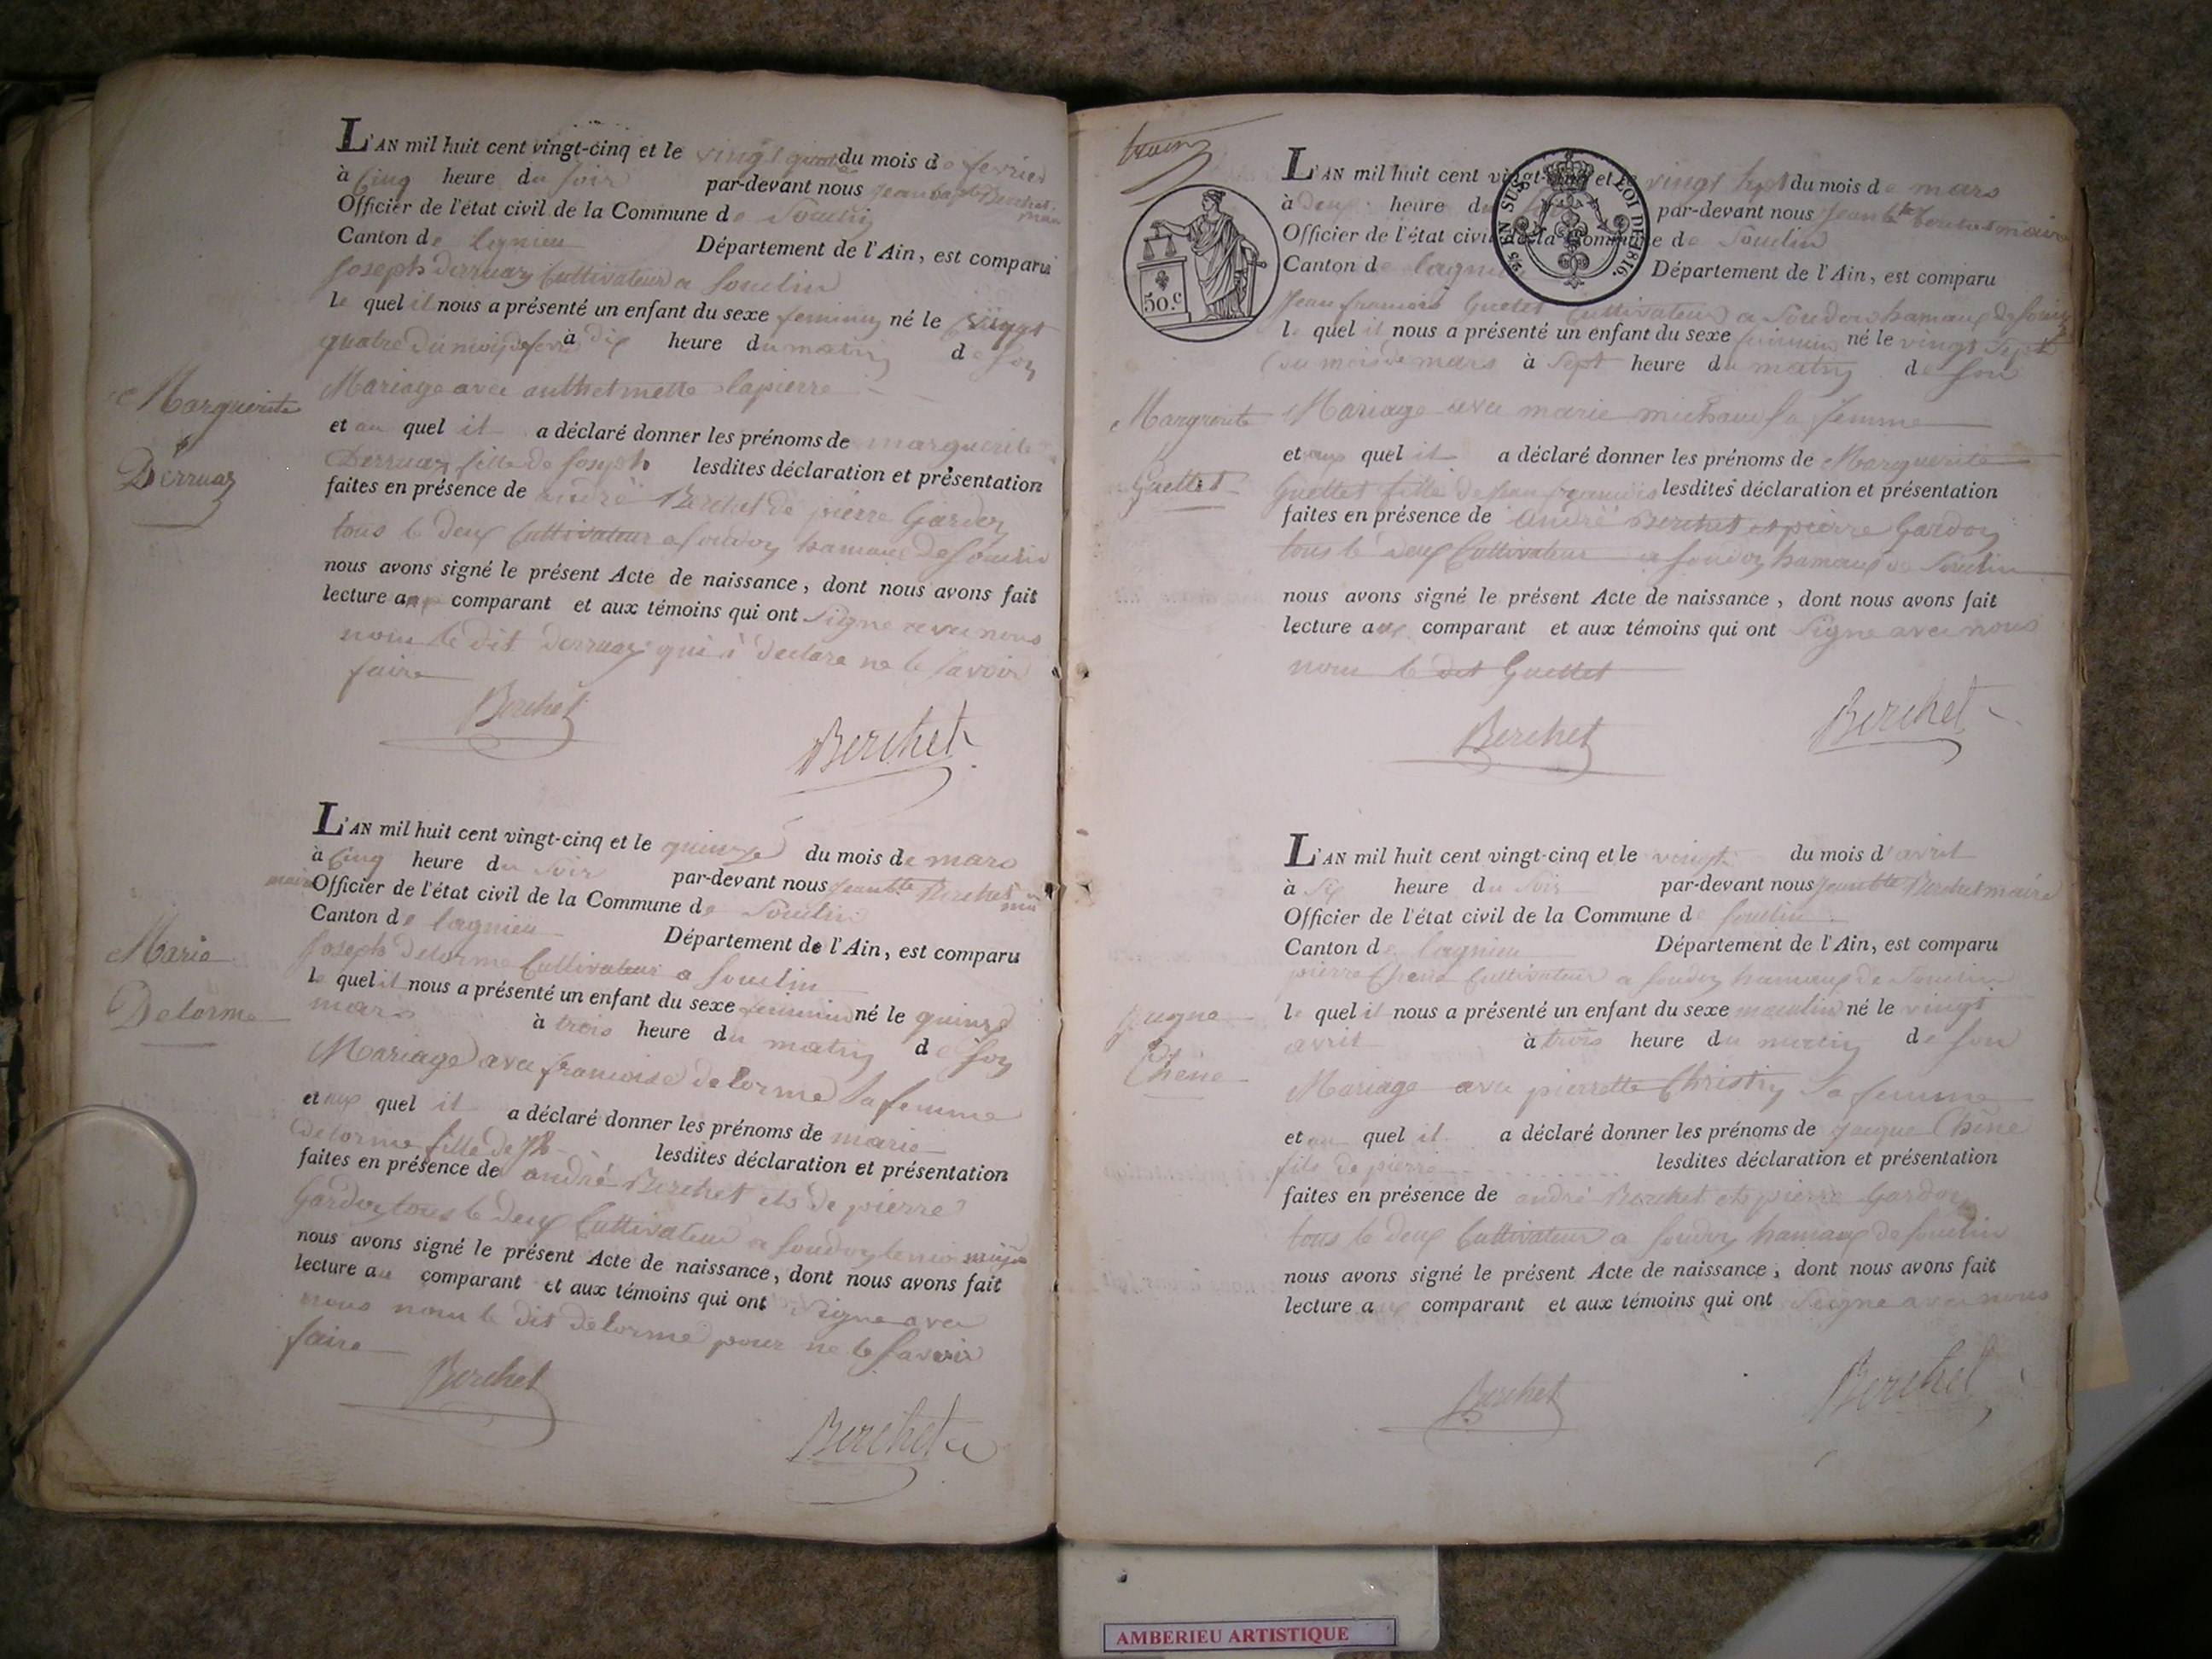 L'AN mil huit cent vingt-cinq et le vingt quatre du mois de fevrier
à Cinq heure du soir par-devant nous Jean bapte Berchet maire
Officier de l'état civil de la Commune de Souclin
Canton de Lagnieu Département de l'Ain, est comparu
Joseph Derruaz Cultivateur a Souclin
le quel il nous a présenté un enfant du sexe feminin né le vingt
quatre du mois de fevrier à dix heure du matin de son
Mariage avec anthelmette lapierre
Marguerite
Derruaz
et au quel il a déclaré donner les prénoms de marguerite
Derruaz fille de Joseph lesdites déclaration et présentation
faites en présence de andré Berchet de pierre Gardon
tous le deux Cultivateur a Soudon hamaux de Souclin
nous avons signé le présent Acte de naissance, dont nous avons fait
lecture aux comparant et aux témoins qui ont Signe avec nous
nom le dit Derruaz qui a declare ne le Savoir
faire
Berchet
Berchet
L'AN mil huit cent vingt-cinq et le quinze du mois de mars
à Cinq heure du soir par-devant nous Jean bte Berchet
maire Officier de l'état civil de la Commune de Souclin
Canton de lagnieu Département de l'Ain, est comparu
Joseph Delorme Cultivateur a Souclin
le quel il nous a présenté un enfant du sexe feminin né le quinze
mars à trois heure du matin de son
Mariage avec francoise delorme Sa femme
Marie
Delorme
et aux quel il a déclaré donner les prénoms de marie
delorme fille de lesdites déclaration et présentation
faites en présence de andré Berchet et de pierre
Gardon tous le deux Cultivateur a Soudon
nous avons signé le présent Acte de naissance, dont nous avons fait
lecture au comparant et aux témoins qui ont Signe avec
nous nom le dit delorme pour ne le Savoir
faire
Berchet
Berchet
50.c
EN SUS LOI DE 1816.
L'AN mil huit cent vingt-cinq et le vingt Sept du mois de mars
à deux heure du par-devant nous Jean bte Berchet maire
Officier de l'état civil de la Commune de Souclin
Canton de lagnieu Département de l'Ain, est comparu
Jean francois Guettet Cultivateur a Soudon hamaux de Souclin
le quel il nous a présenté un enfant du sexe feminin né le vingt Sept
du mois de mars à Sept heure du matin de son
Margreite Mariage avec marie michaud sa femme
Guettet
et aux quel il a déclaré donner les prénoms de Marguerite
Guettet fille de Jean francois lesdites déclaration et présentation
faites en présence de andré Berchet et pierre Gardon
tous le deux Cultivateur a Soudon hamaux de Souclin
nous avons signé le présent Acte de naissance, dont nous avons fait
lecture aux comparant et aux témoins qui ont Signe avec nous
nom le dit Guettet
Berchet
Berchet
L'AN mil huit cent vingt-cinq et le vingt du mois d'avril
à Six heure du Soir par-devant nous Jean bte Berchet maire
Officier de l'état civil de la Commune de Souclin
Canton de lagnieu Département de l'Ain, est comparu
pierre Chene Cultivateur a Soudon hamaux de Souclin
le quel il nous a présenté un enfant du sexe masculin né le vingt
avril à trois heure du matin de son
Mariage avec pierrette Christin Sa femme
Chene
et au quel il a déclaré donner les prénoms de Jacque Chene
fils de pierre lesdites déclaration et présentation
faites en présence de andré Berchet et pierre Gardon
tous le deux Cultivateur a Soudon hamaux de Souclin
nous avons signé le présent Acte de naissance, dont nous avons fait
lecture aux comparant et aux témoins qui ont Signe avec nous
Berchet
Berchet
AMBERIEU ARTISTIQUE